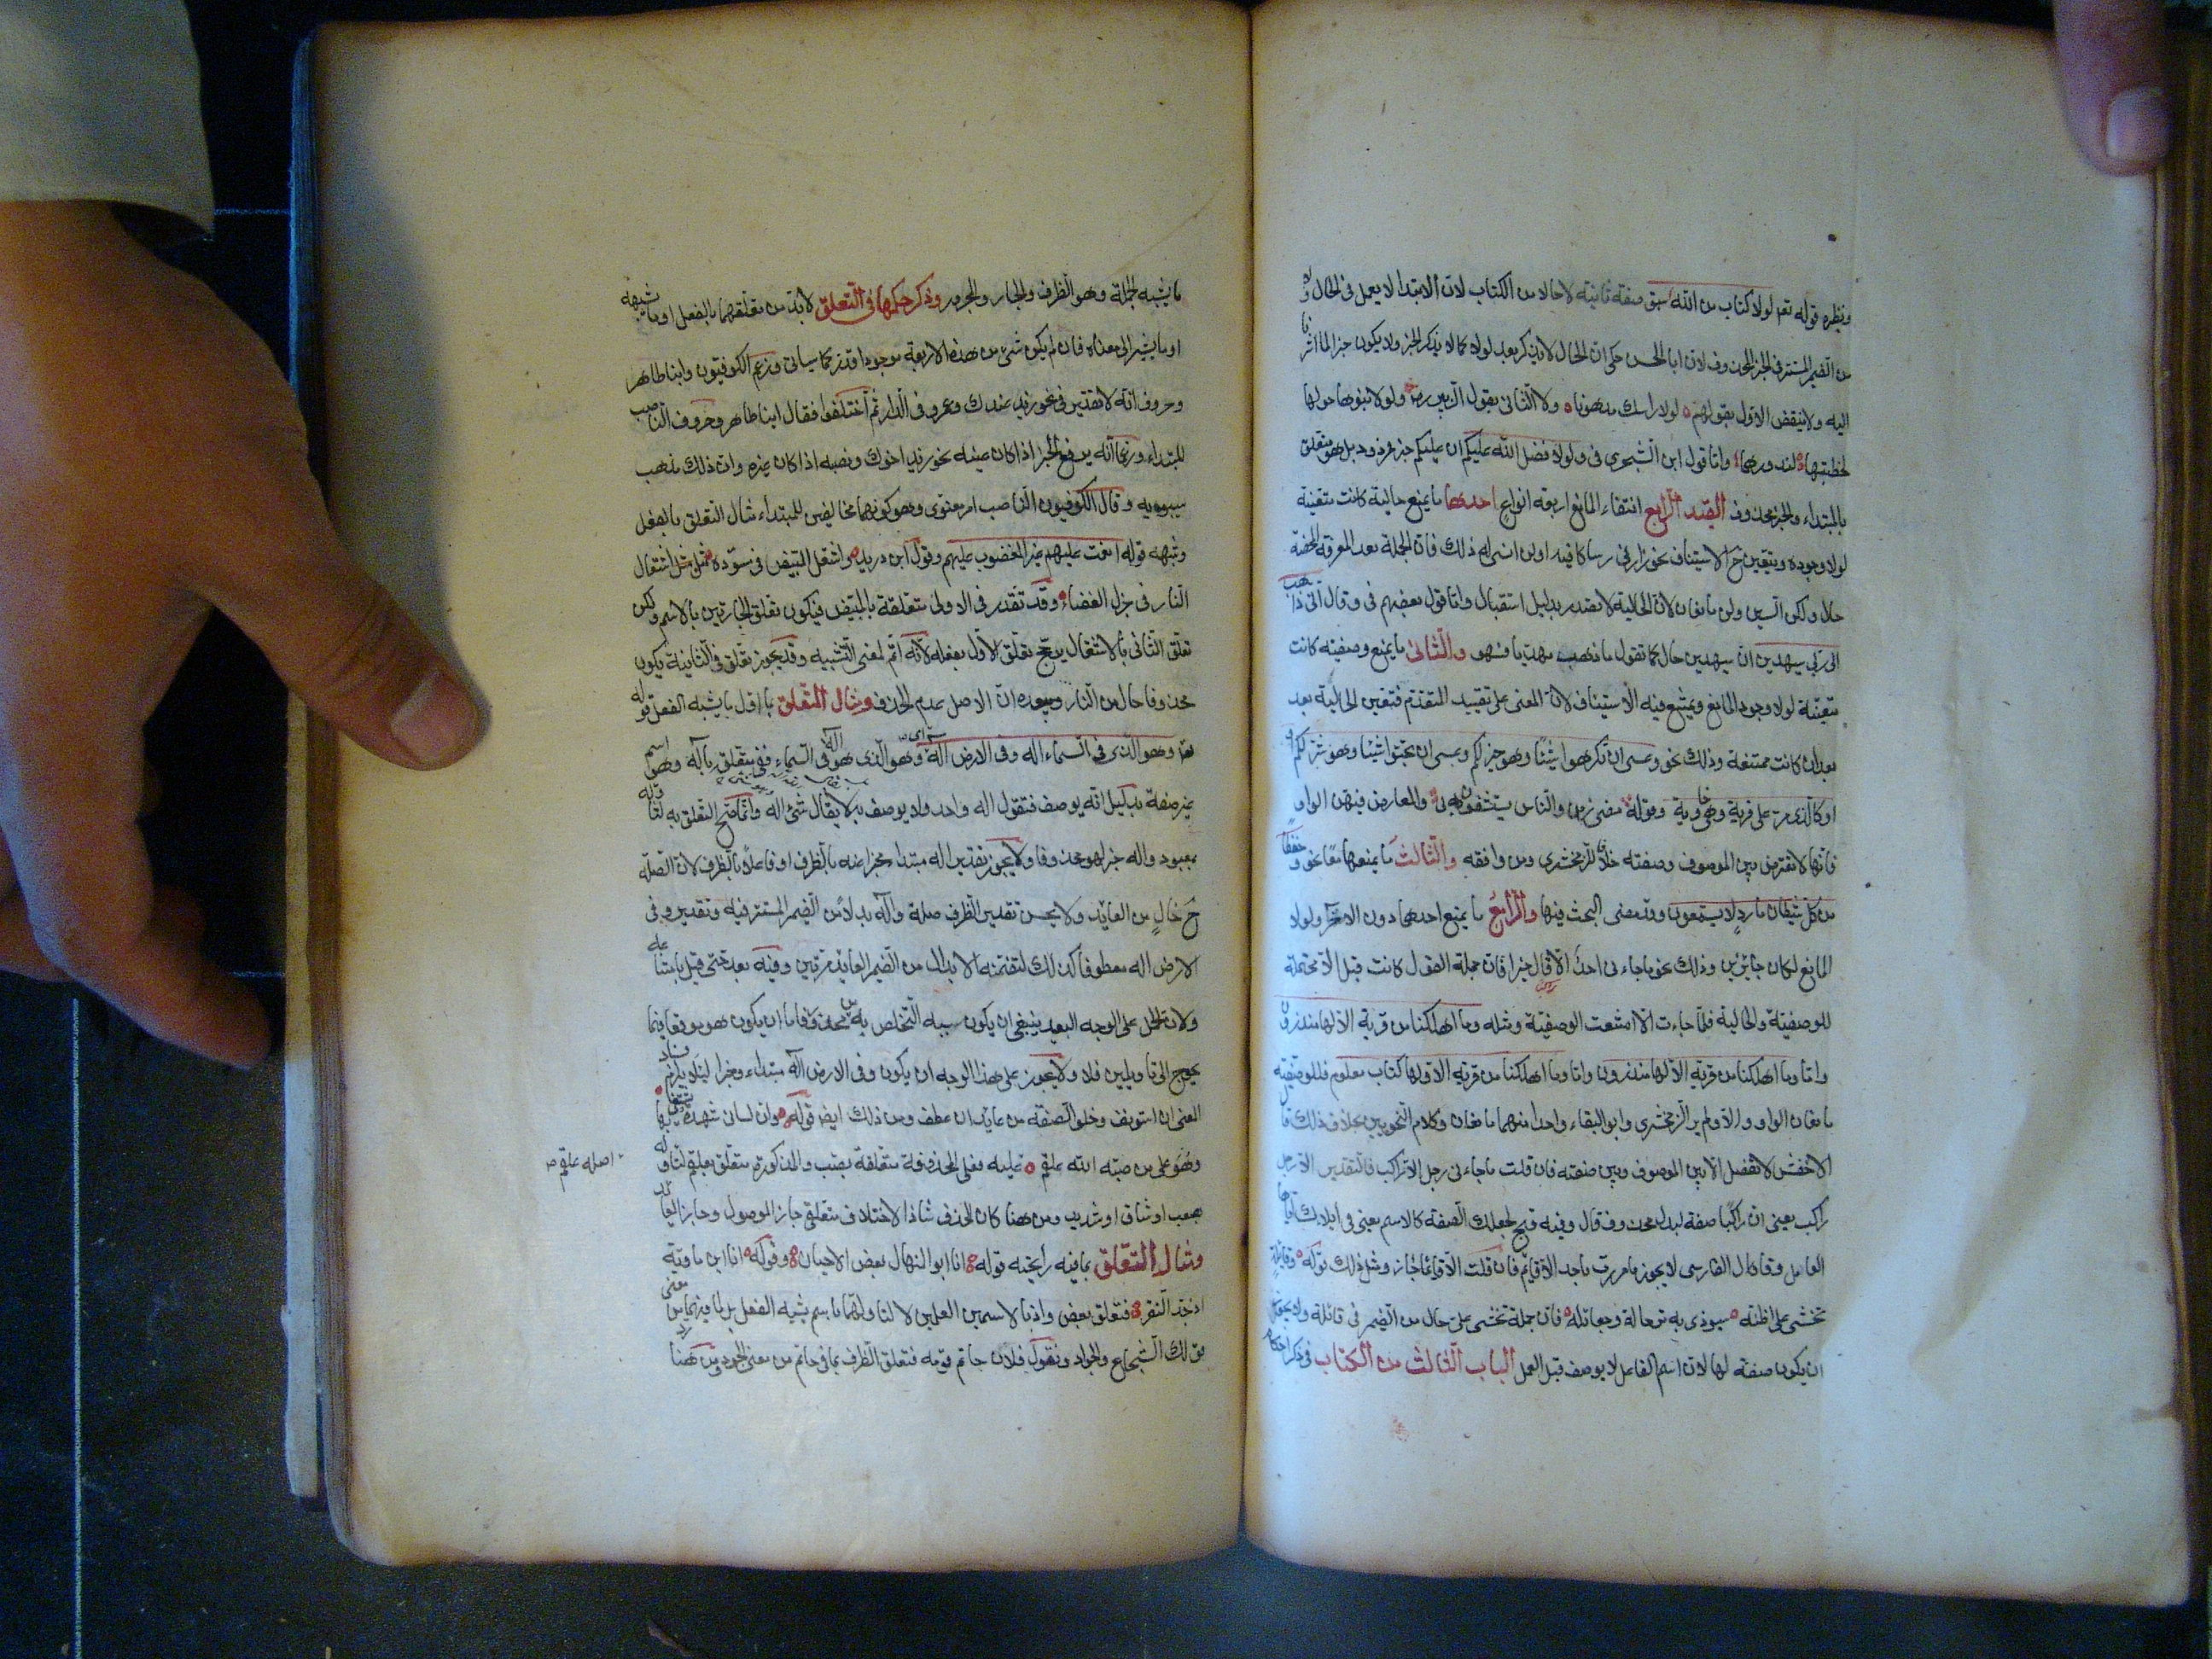 ونظيره قوله تعم لولا كتاب من الله سبق صفة ثانية لا حالا من الكتاب لان الابتدا لا يعمل فى الحال ولا
من الضمير المستتر فى الخبر المحذوف لان ابا الحسن حكى ان الحال لا يذكر بعد لولا كما لا يذكر الخبر ولا يكون خبرا لما اشرنا
اليه ولا ينقض الاول بقولهم لولا راسك مدهونا ولا الثانى بقول الزبير رض ولولا بنوها حولها
لخطبتها لندور هما واما قول ابن الشجرى فى ولولا فضل الله عليكم ان عليكم خبر فمردود بل هو متعلق
بالمبتداء والخبر محذوف القيد الرابع انتفاء المانع اربعة انواع احدها ما يمنع حالية كانت متعينة
لولا وجوده ويتعين ح الاستيناف نحو زارنى زيد سأكافيه او لن انسى له ذلك فان الجملة بعد المعرفة المحضة
حال ولكن السين ولن مانعان لان الحالية لا تصدر بدليل استقبال واما قول بعضهم فى وقال انى ذاهب
الى ربى سيهدين ان سيهدين حال كما تقول ما ذهب مهديا فسهو والثانى ما يمنع وصفية كانت
متعينة لولا وجود المانع ويمتنع فيه الاستيناف لان المعنى على تقييد المتقدم فتعين الحالية بعد
بعد ان كانت ممتنعة وذلك نحو وعسى ان تكرهوا شيئا وهو خير لكم وعسى ان تحبوا شيئا وهو شر لكم
او كالذى مر على قرية وهى خاوية وقوله مضى زمن والناس يستشفعون بى والمعارض فيهن الواو
فانها لا تعترض بين الموصوف وصفته خلافا للزمخشرى ومن وافقه والثالث ما يمنعهما معا نحو وحفظا
من كل شيطان مارد لا يسمعون وقد مضى البحث فيها والرابع ما يمنع احدهما دون الاخر ولولا
المانع لكان جائزين وذلك نحو ما جاءنى احد الا قال خيرا فان جملة القول كانت قبل الا محتملة
للوصفية والحالية فلما جاءت الا امتنعت الوصفية ومثله وما اهلكنا من قرية الا لها منذرون
واما وما اهلكنا من قرية الا لها منذرون واما وما اهلكنا من قرية الا ولها كتاب معلوم فللوصفية
مانعان الواو والا ولم ير الزمخشرى وابو البقاء واحدا منهما مانعان وكلام النحويين بخلاف ذلك قال
الاخفش لا تفصل الا بين الموصوف وبين صفته فان قلت ما جاءنى رجل الا راكب فالتقدير الا رجل
راكب يعنى ان راكبا صفة لبدل محذوف قال وفيه قبح لجعلك الصفة كالاسم يعنى فى ايلائك اياها
العامل وقال الفارسى لا يجوز ما مررت باحد الا قائم فان قلت الا قائما جاز ومثل ذلك قوله وقائلة
تخشى على اظنه سيودى به ترحاله وجعائله فان جملة تخشى على حال من الضمير فى قائلة ولا يجوز
ان يكون صفة لها لان اسم الفاعل لا يوصف قبل العمل الباب الثالث من الكتاب فى ذكر احكام
ما يشبه الجملة وهو الظرف والجار والمجرور وذكر حكمها فى التعلق لا بد من تعلقهما بالفعل او ما يشبهه
او ما يشير الى معناه فان لم يكن شىء من هذه الاربعة موجودا قدر كما سياتى وزعم الكوفيون وابنا طاهر
وخروف انه لا تقدير فى نحو زيد عندك وعمرو فى الدار ثم اختلفوا فقال ابنا طاهر وخروف الناصب
للمبتداء وزعما انه يرفع الخبر اذا كان عينه نحو زيد اخوك ونصبه اذا كان غيره وان ذلك مذهب
سيبويه وقال الكوفيون الناصب امر معنوى وهو كونهما مخالفين للمبتداء مثال التعلق بالفعل
وشبهه قوله انعمت عليهم غير المغضوب عليهم وقول ابن دريد واشتعل المبيض فى مسوده مثل اشتعال
النار فى جزل الغضاء وقد تقدر فى الاولى متعلقة بالمبيض فيكون تعلق الجارين بالاسم ولكن
تعلق الثانى بالاشتعال يرجح تعلق الاول بفعله لانه اتم لمعنى التشبيه وقد يجوز تعلق فى الثانية بكون
محذوفا حال من النار ويبعده ان الاصل عدم الحذف ومثال التعلق بما اول بما يشبه الفعل قوله
تعم وهو الذى فى السماء اله وفى الارض اله اى وهو الذى هو اله فى السماء ففى متعلق باله وهو اسم
غير صفة بدليل انه يوصف فتقول اله واحد ولا يوصف به لا يقال شىء اله وانما صح التعلق به لتاوله
بمعبود واله خبر لهو محذوفا ولا يجوز تقدير اله مبتداء مخبرا عنه بالظرف او فاعلا بالظرف لان الصلة
ح خال من العايد ولا يحسن تقدير الظرف صلة واله بدلا من الضمير المستتر فيه وتقدير وفى
الارض اله معطوفا كذلك لتضمنه الابدال من الضمير العايد مرتين وفيه بعد حتى قيل بامتناعه
ولان الحمل على الوجه البعيد ينبغى ان يكون سببه التخلص به من محذوف فاما ان يكون هو موقعا فيما
يحوج الى تاويلين فلا ولا يجوز على هذا الوجه ان يكون وفى الارض اله مبتداء وخبرا لئلا يلزم فساد
المعنى ان استونف وخلو الصفة من عايد ان عطف ومن ذلك ايض قوله وان لسانى شهدة يشتفى بها
وهو على من صبه الله علقم عليه فعلى المحذوفة متعلقة بصب والمذكورة متعلق بعلقم لتاوله
بصعب او شاق او شديد ومن هنا كان الحذف شاذا لاختلاف متعلقى جار الموصول وجار العايد
ومثال التعلق بما فيه رايحته قوله انا ابو المنهال بعض الاحيان وقوله انا ابن ماوية
اذ جد النقر فتعلق بعض واذ بالاسمين العلمين لا لتاولهما باسم يشبه الفعل بل لما فيهما من معنى
قولك الشجاع والجواد وتقول فلان حاتم قومه فتعلق الظرف بما فى حاتم من معنى الجود ومن هنا رد
اصله علقم